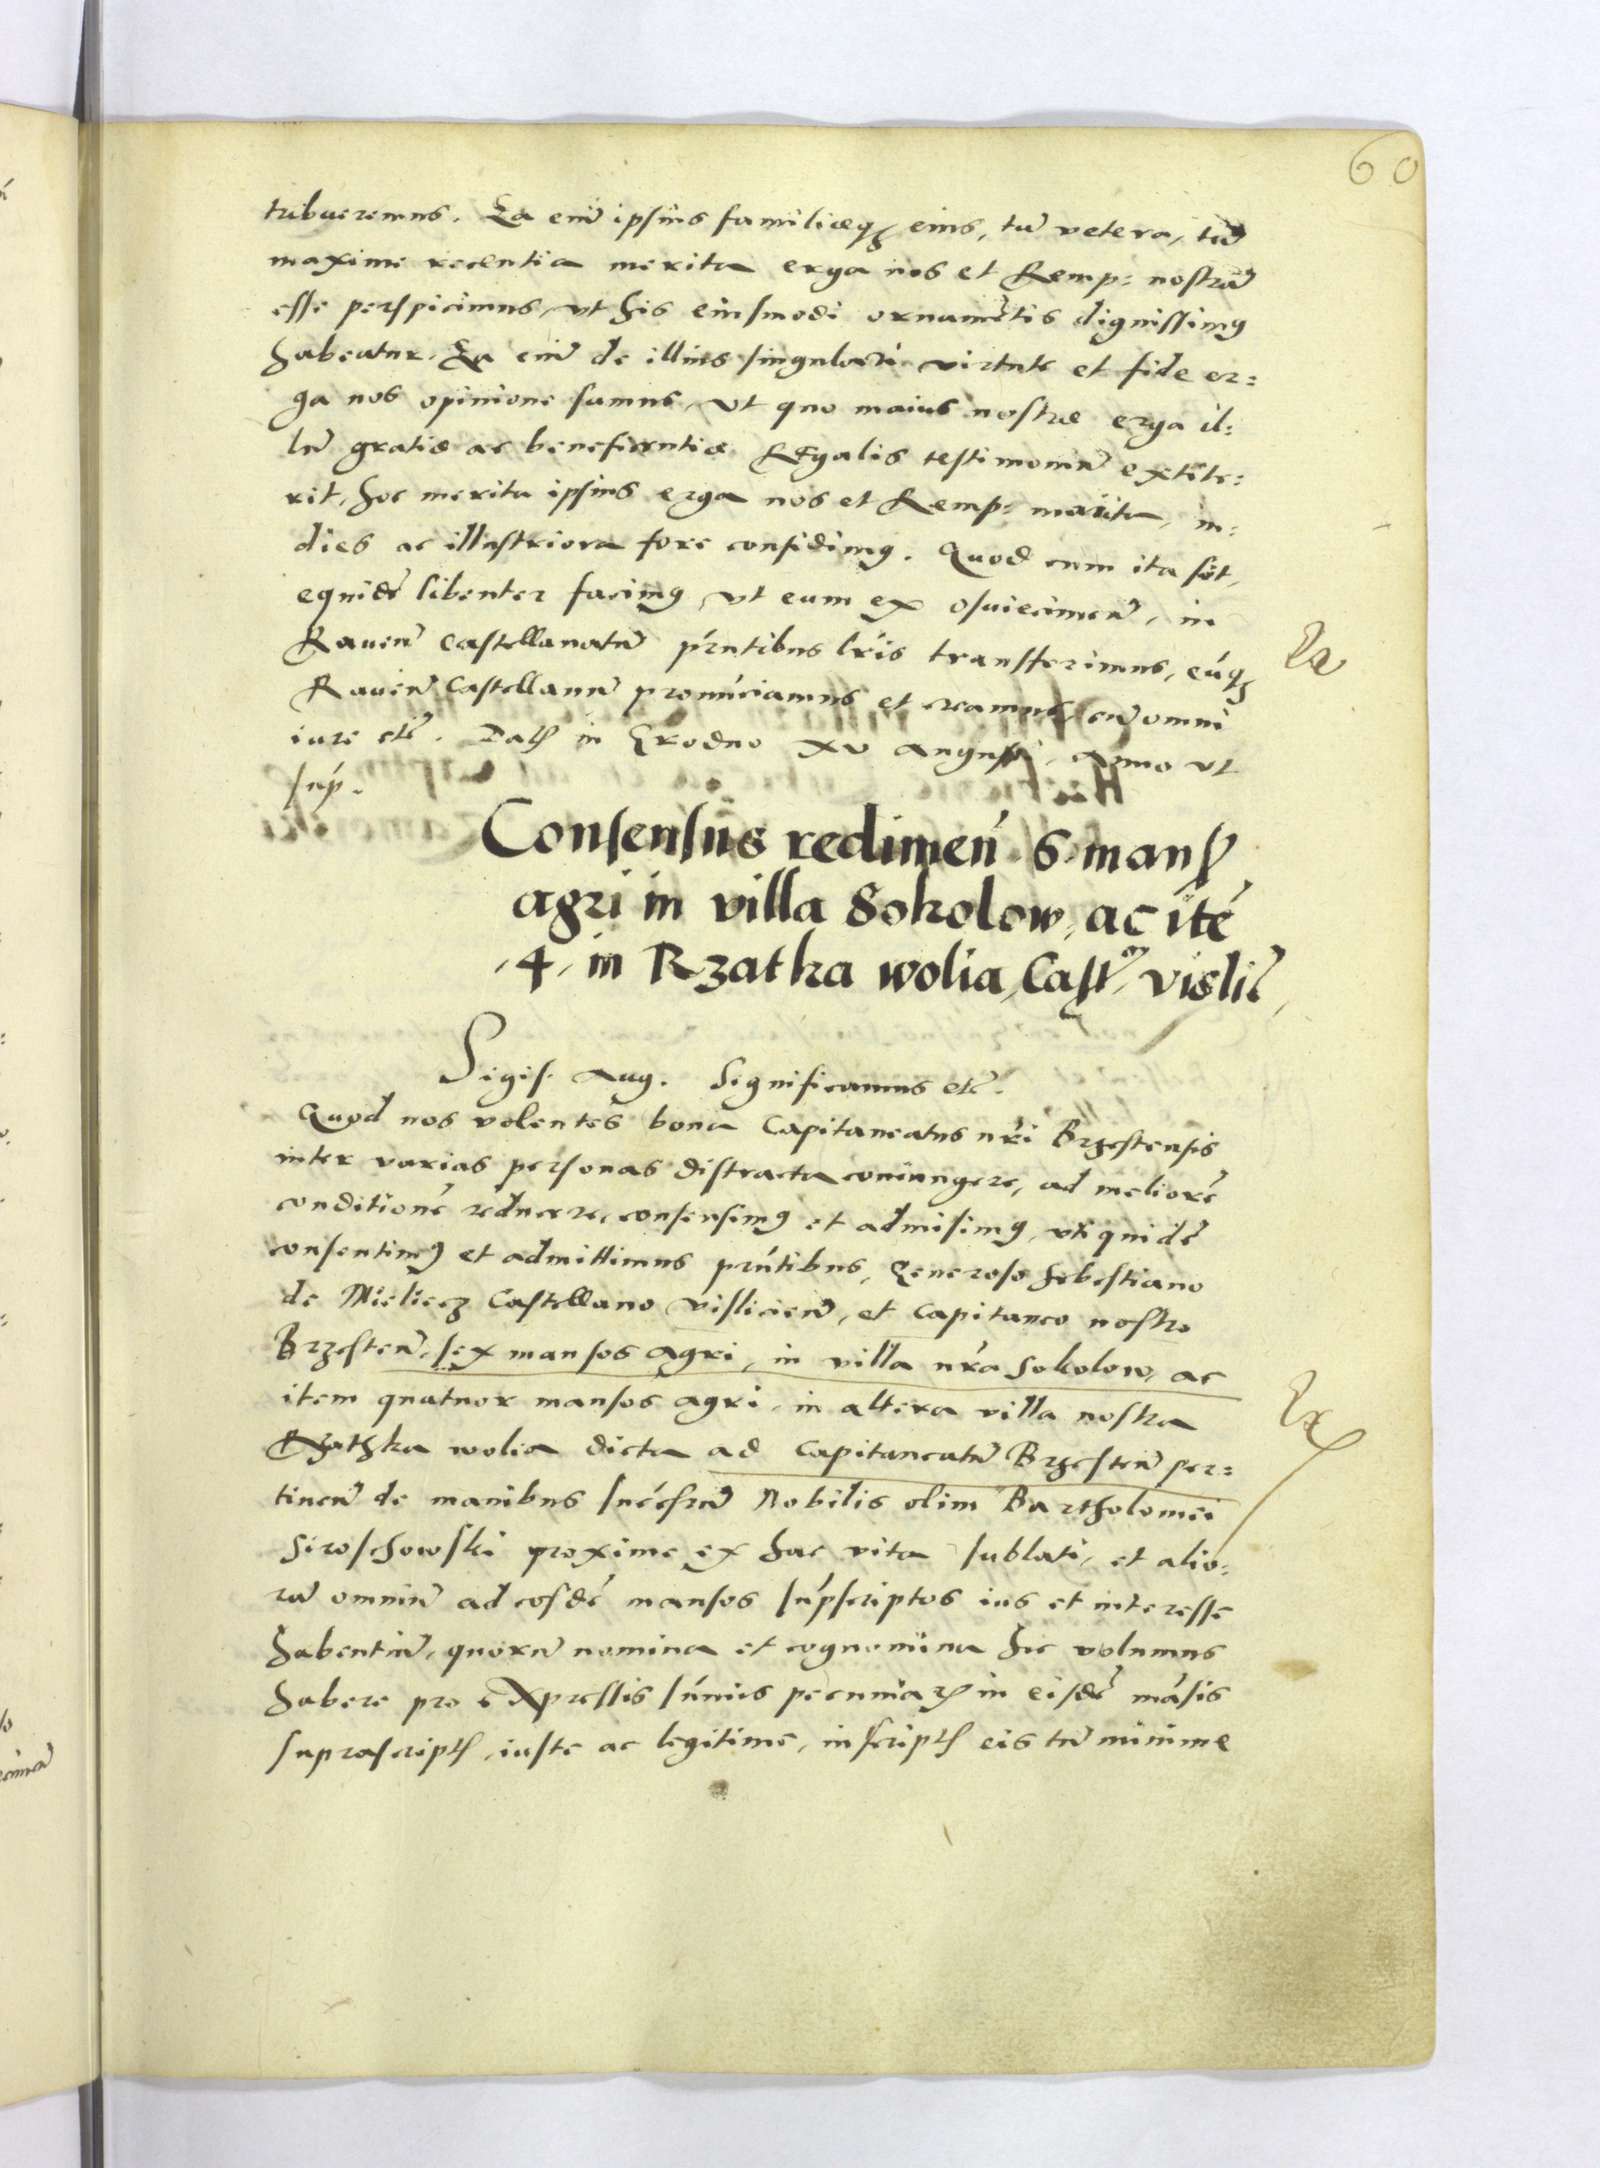 60
tribueremus. Ea enī ipsius familiaeqʒ eius, tū vetera, tū
maxime recentia merita erga nos et Remp: nostrā
esse perspicimus, ut his eiusmodi ornamētis dignissimꝰ
habeatur. Ea enī de illius singulari virtute et fide er=
ga nos opinione sumus, ut quo maius nostrae erga il=
lū gratiae ac beneficentiae Regalis testimoniū extite=
rit, hoc merita ipsius erga nos et Remp: in=
dies ac illustriora fore confidimꝰ. Quod cum ita sīt,
equidē libenter facimꝰ, ut eum ex Osviecimeñ, in
Raveñ Castellanatū pr̄ntibus lr̄is transferimus, eūqʒ
Raveñ Castellanū pronūciamus et creamus, cū omni
iure etc̄. Datꝭ in Grodno xv Augusti, Anno ut
sup̄.
Consensus redimen̄ 6 mansꝭ
agri in villa Sokolow, ac itē
4, in Rzatka wolia, Castⁿ, vislic̄,
Sigis. Aug. Significamus etc̄.
Quod nos volentes bona Capitaneatus nr̄i Brzestensis
inter varias personas distracta coniungere, ad meliorē
conditionē reducere, consensimꝰ et admisimꝰ, uti quidē
consentimꝰ et admittimus pr̄ntibus, Generoso Sebestiano
de Mieliecz Castellano vislicieñ, et Capitaneo nostro
Brzesteñ, sex mansos agri, in villa nr̄a Sokolow, ac
item quatuor mansos agri, in altera villa nostra
Rzathka wolia dicta ad Capitaneatū Brzesteñ per=
tineñ de manibus succesorū Nobilis olim Bartholomei
Siroschowski proxime ex hac vita sublati, et alio=
rū omniū ad eosdē mansos sup̄scriptos ius et interesse
habentiū, quorū nomina et cognomina hic volumus
habere pro expressis sūmis pecuniarꝝ in eisdē māsis
suprascriptꝭ, iuste ac legitime, inscriptꝭ eis tū minime